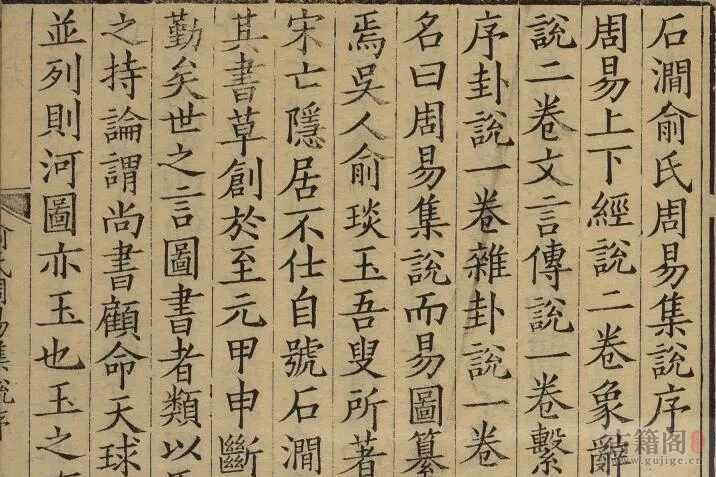 石澗俞氏周易集說序
周易上下經說二卷象辭
說二卷文言傳說一卷繫
序卦說一卷雜卦說一卷
名曰周易集說而易圖纂
焉吳人俞琰玉吾叟所著
宋亡隱居不仕自號石澗
其書草創於至元甲申斷
勤矣世之言圖書者類以
之持論謂尚書顧命天球
並列則河圖亦玉也玉之
俞氏周易集說序
古籍阁
www.gujige.cn